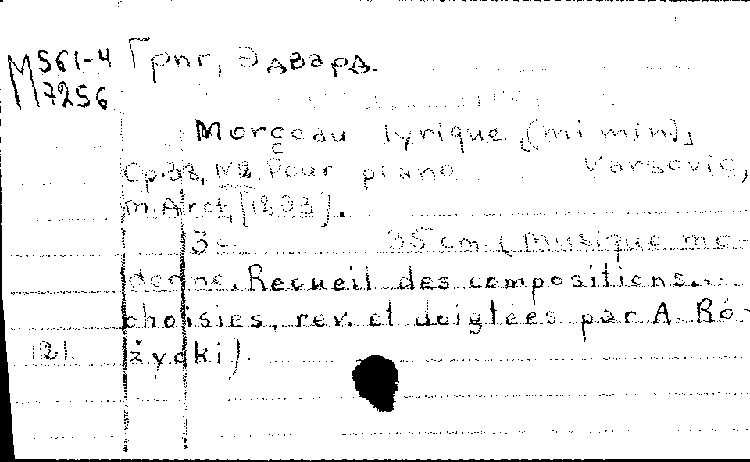 М 561-4 Григ, Эдвард.
7256
Morçeau lyrique, (mi min),
Op. № 2. Pour piano Varsovie,
M. Arct,
3 с. 35 cm (Musique mo-
derne. Recueil des compositions...
choisies, rev. et doigtées par A. Ró-
121 życki).